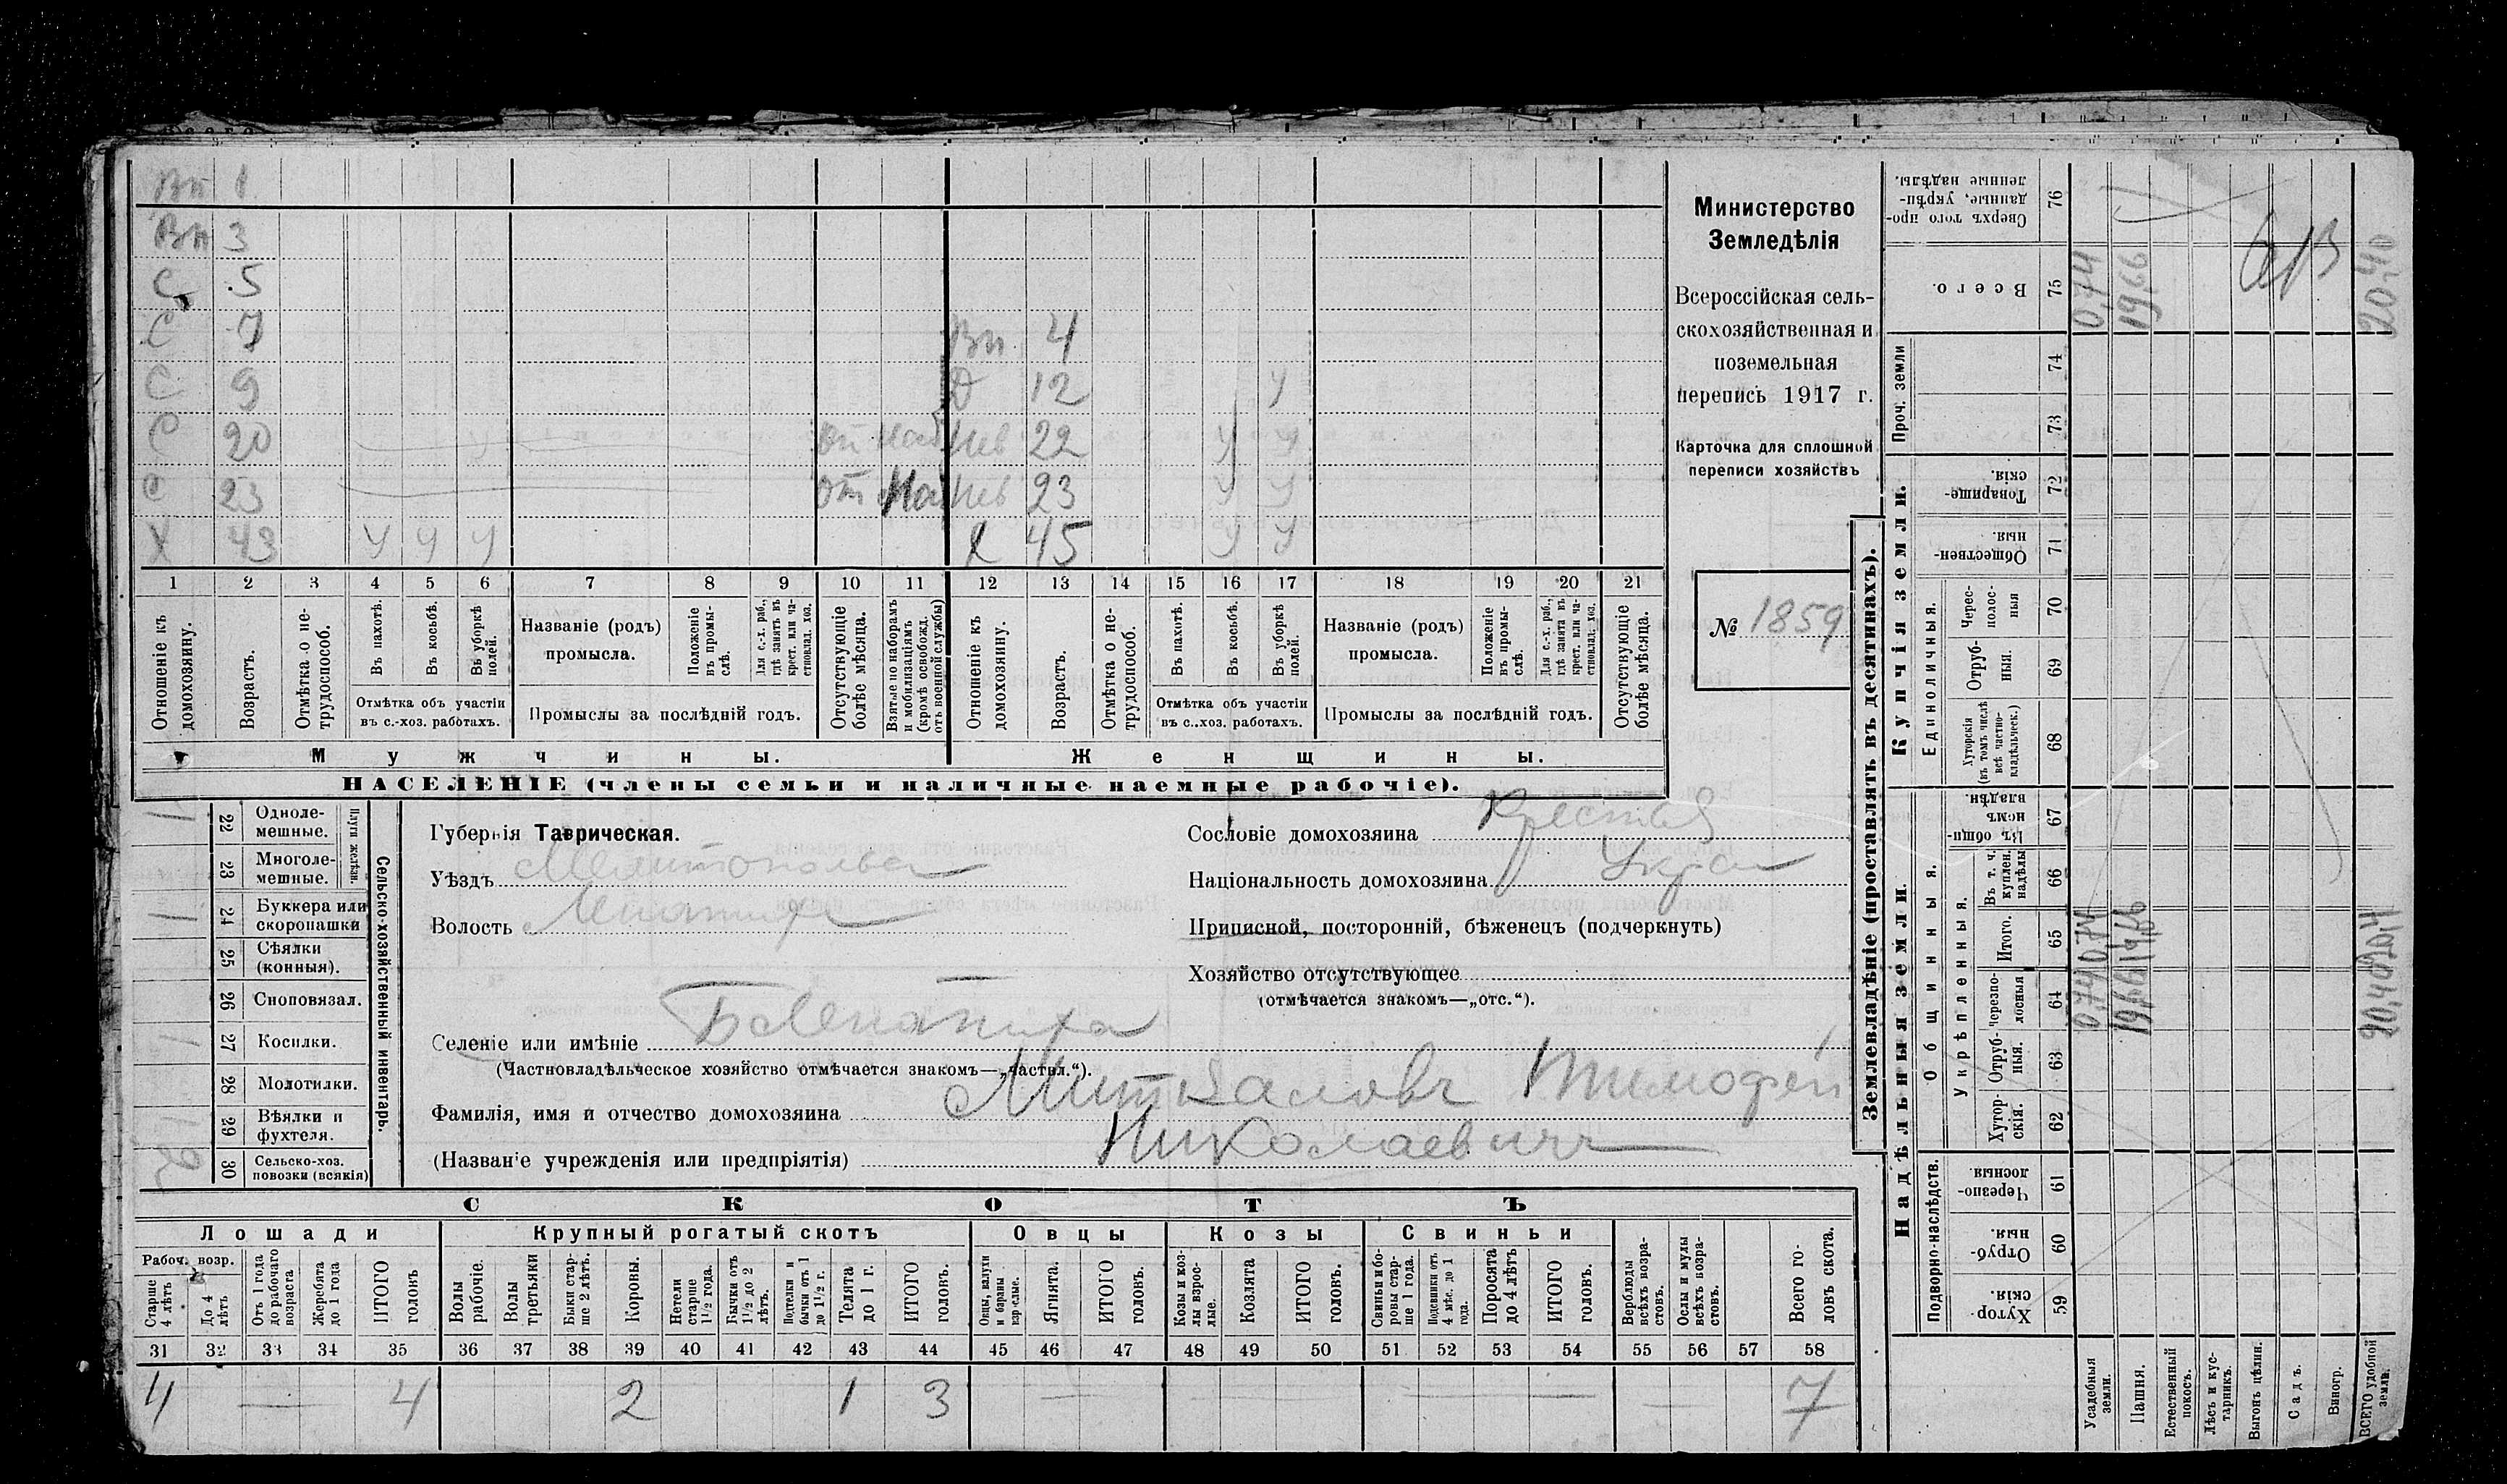 Вп 1
Вп 3
С 5
С 7 Вп 4
С 9 Д 12 У
С 20 У от Нев 22 У У
С 23 от Нев 23 У У
Х 43 У У У Х 45 У У
1 2 3 4 5 6 7 8 9 10 11 12 13 14 15 16 17 18 19 20 21
Отношеніе къ домохозяину.
Возрастъ.
Отмѣтка о нетрудоспособ.
Въ пахотѣ.
Въ косьбѣ.
Въ уборкѣ полей.
Отмѣтка объ участіи въ с.-хоз. работахъ.
Названіе (родъ) промысла.
Положеніе въ промыслѣ.
Для с.-х. раб., гдѣ занятъ въ крест. или частновлад. хоз.
Промыслы за послѣдній годъ.
Отсутствующіе болѣе мѣсяца.
Взятые по наборамъ и мобилизаціямъ (кромѣ освобожд. отъ военной службы)
Отношеніе къ домохозяину.
Возрастъ.
Отмѣтка о нетрудоспособ.
Въ пахотѣ.
Въ косьбѣ.
Въ уборкѣ полей.
Отмѣтка объ участіи въ с..хоз. работахъ.
Названіе (родъ) промысла.
Положеніе въ промыслѣ.
Для с.-х. раб., гдѣ занята въ крест. или частновлад. хоз.
Промыслы за послѣдній годъ.
Отсутствующіе болѣе мѣсяца.
Мужчины. Женщины.
НАСЕЛЕНІЕ (члены семьи и наличные наемные рабочіе).
Министерство
Земледѣлія
Всероссійская сель-
скохозяйственная и
поземельная
перепись 1917 г.
Карточка для сплошной
переписи хозяйствъ
№ 1859
22 Одноле-
мешные.
23 Многоле-
мешные.
Плуги желѣзн.
24 Буккера или
скоропашки
25 Сѣялки
(конныя).
26 Сноповязал.
27 Косилки.
28 Молотилки.
29 Вѣялки и
фухтеля.
30 Сельско-хоз.
повозки (всякія)
Сельско-хозяйственный инвентарь.
Губернія Таврическая.
Уѣздъ Мелитопольск
Волость Лепатих
Селеніе или имѣніе Б Лепатиха
(Частновладѣльческое хозяйство отмѣчается знакомъ—„частвл.“).
Фамилія, имя и отчество домохозяина Митькаловъ Тимофей
Николаевичъ
(Названіе учрежденія или предпріятія)
Сословіе домохозяина Крестья
Національность домохозяина Укра
Приписной, посторонній, бѣженецъ (подчеркнуть)
Хозяйство отсутствующее
(отмѣчается знакомъ—„отс.“).
СКОТЪ
Лошади Крупный рогатый скотъ Овцы Козы Свиньи
Рабоч. возр.
Старше 4 лѣтъ
До 4 лѣтъ
Отъ 1 года до рабочаго возраста
Жеребята до 1 года
ИТОГО головъ
Волы рабочіе.
Волы третьяки
Быки старше 2 лѣтъ.
Коровы.
Нетели старше 1½ года.
Бычки отъ 1½ до 2 лѣтъ.
Подтелки и бычки отъ 1 до 1½ г.
Телята до 1 г.
ИТОГО головъ.
Овцы, валухи и бараны взрослые.
Ягнята.
ИТОГО головъ.
Козы и козлы взрослые.
Козлята
ИТОГО головъ.
Свиньи и боровы старше 1 года.
Подсвинки отъ 4 мѣс. до 1 года.
Поросята до 4 лѣтъ
ИТОГО головъ.
Верблюды всѣхъ возрастовъ.
Ослы и мулы всѣхъ возрастовъ.
Всего головъ скота.
31 32 33 34 35 36 37 38 39 40 41 42 43 44 45 46 47 48 49 50 51 52 53 54 55 56 57 58
4 4 2 1 3 7
Землевладѣніе (проставлять въ десятинахъ).
Купчія земли.
Надѣльныя земли.
Сверхъ того проданные, укрѣпленные надѣлы. 76
Всего. 75
0,74
19,66
20,40
Проч. земли 74 73
Товарищескія. 72
Общественныя. 71
Единоличныя.
Чересполосныя 70
Отрубныя. 69
Хуторскія (въ томъ числѣ всѣ частновладѣльческ.) 68
Общинныя.
Въ общинномъ владѣн. 67
Укрѣпленныя.
Въ т. ч. куплен. надѣлы 66
Итого. 65
0,74
19,66
20,4
Черезполосныя 64
0,74
19,66
20,40
Отрубныя. 63
Хуторскія. 62
Подворно-наслѣдств.
Черезполосныя 61
Отрубныя. 60
Хуторскія 59
Усадебныя земли.
Пашня.
Естественный покосъ.
Лѣсъ и кустарникъ.
Выгонъ цѣлин.
Садъ.
Виногр.
ВСЕГО удобной земли.